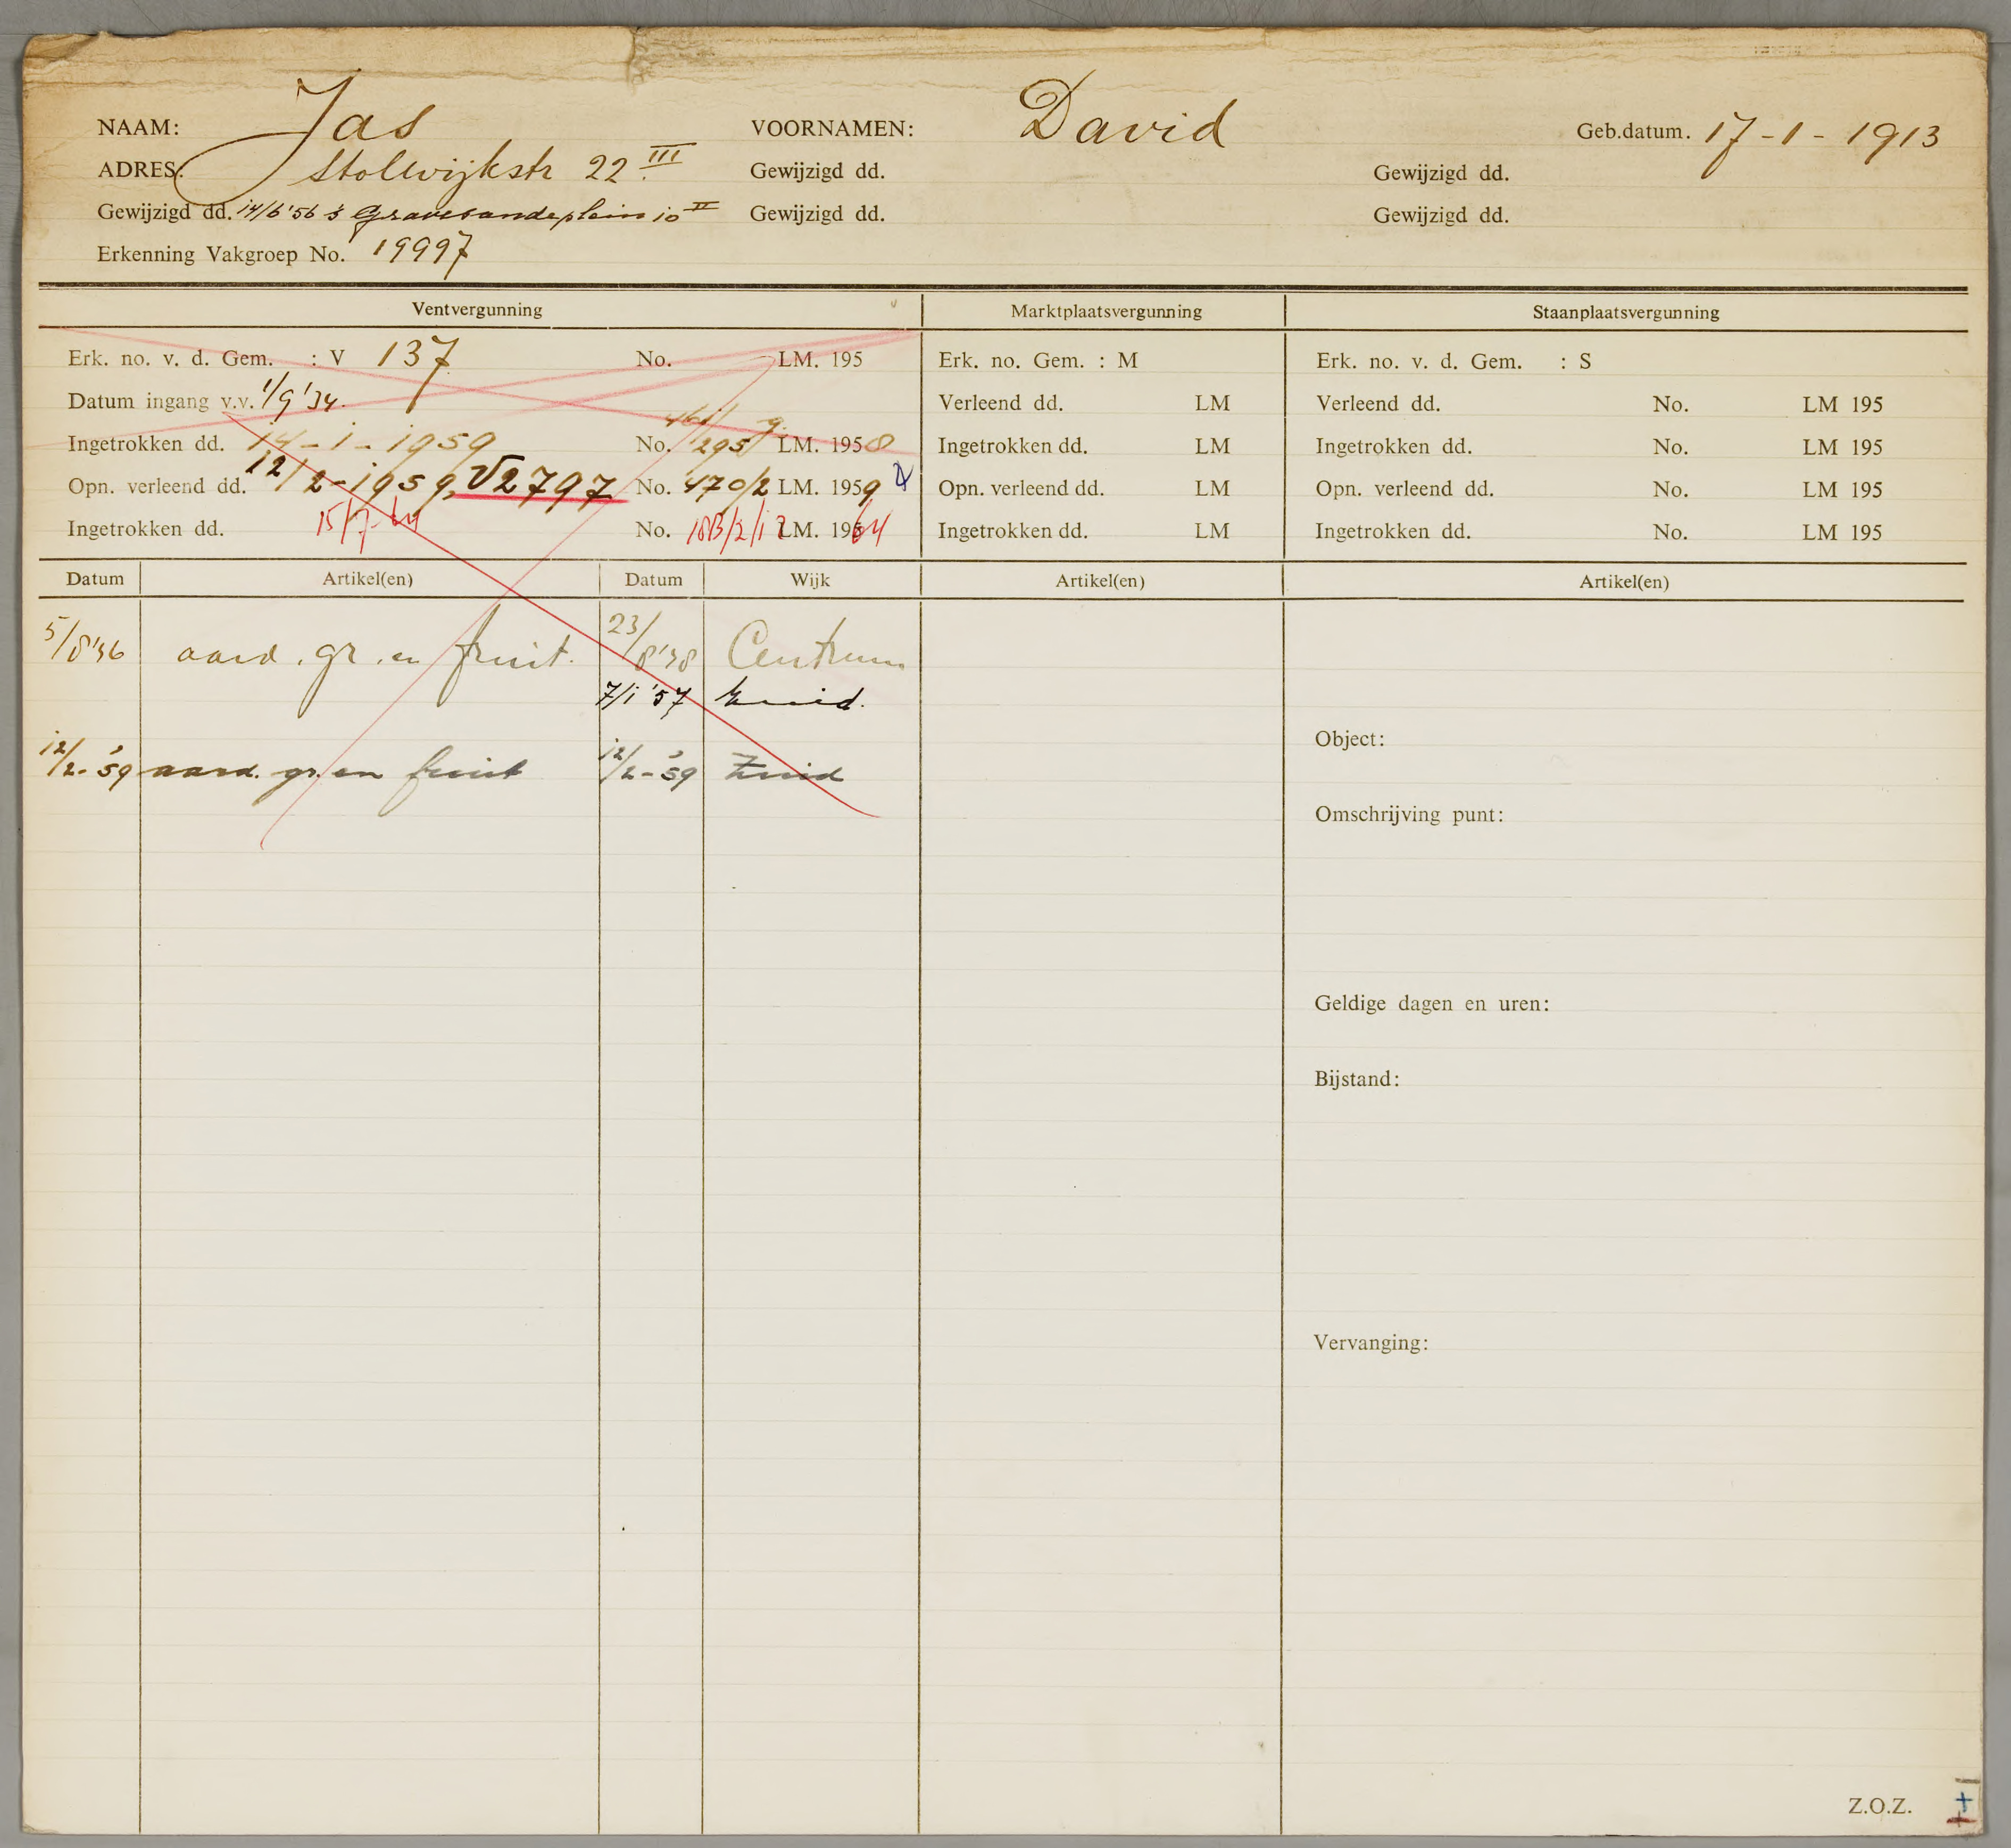 NAAM: Jas VOORNAMEN: David Geb.datum. 17-1-1913
ADRES: Stolwijkstr 22 III Gewijzigd dd. Gewijzigd dd.
Gewijzigd dd. 14/6'56 's Gravesandeplein 10 II Gewijzigd dd. Gewijzigd dd.
Erkenning Vakgroep No. 19997
Ventvergunning Marktplaatsvergunning Staanplaatsvergunning
Erk. no. v. d. Gem. : V 137 No. LM. 195 Erk. no. Gem. : M Erk. no. v. d. Gem. : S
Datum ingang v.v. 1/9'34. Verleend dd. LM Verleend dd. No. LM 195
Ingetrokken dd. 14-1-1959 No. LM. 1958 Ingetrokken dd. LM Ingetrokken dd. No. LM 195
Opn. verleend dd. 12/2-1959, V2797 No. 470/2 LM. 1959 Opn. verleend dd. LM Opn. verleend dd. No. LM 195
Ingetrokken dd. 15/7-64 No. LM. 1964 Ingetrokken dd. LM Ingetrokken dd. No. LM 195
Datum Artikel(en) Datum Wijk Artikel(en) Artikel(en)
aard. gr. en fruit. Centrum
7/1'57 Zuid.
Object:
12/2-'59 aard. gr. en fruit 12/2-'59 Zuid
Omschrijving punt:
Geldige dagen en uren:
Bijstand:
Vervanging:
Z.O.Z.